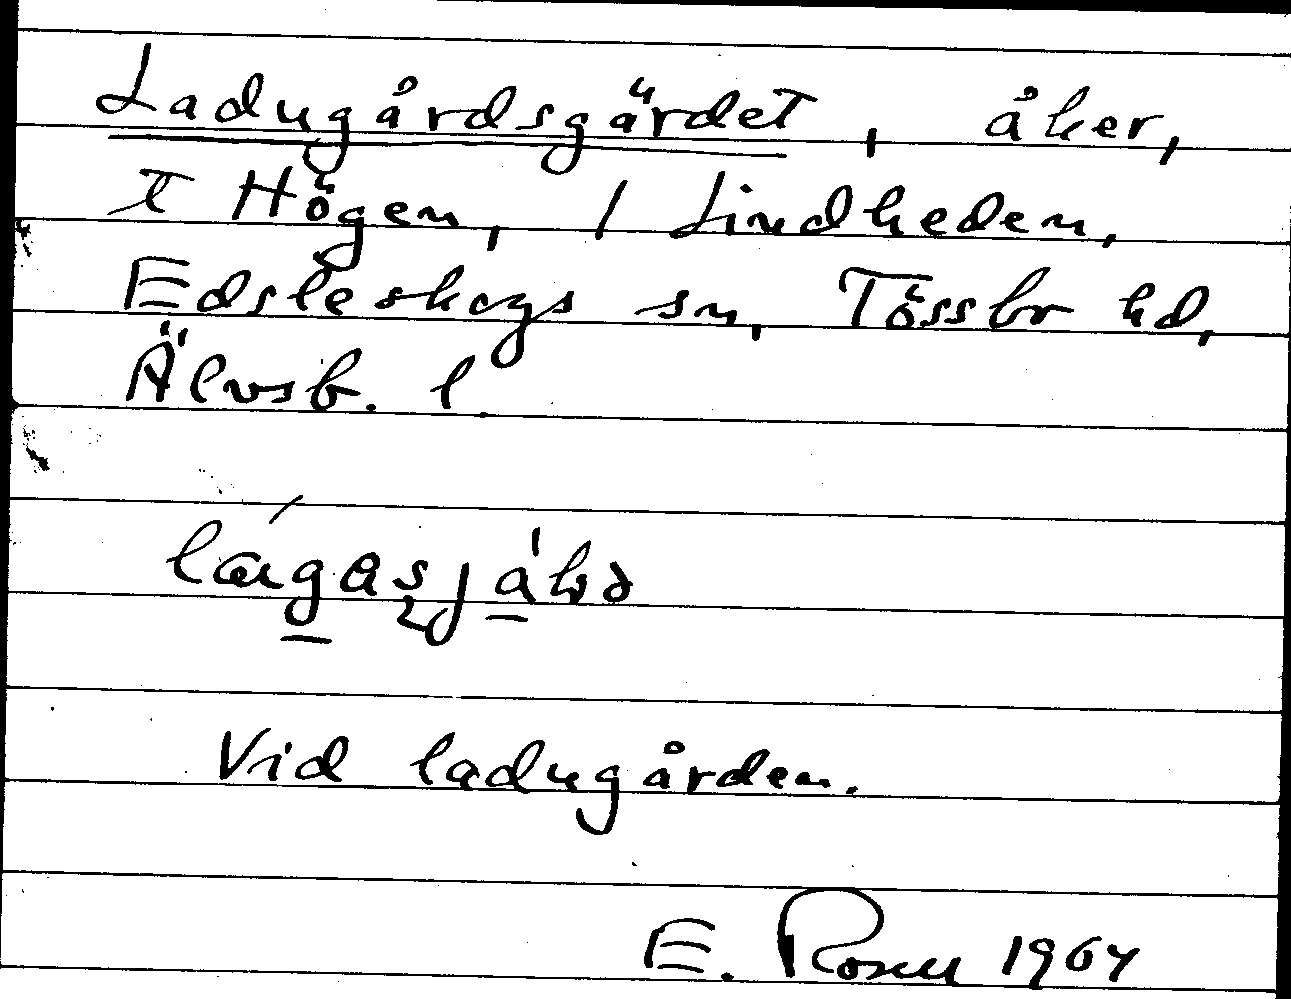 Ladugårdsgärdet, åker,
t Högen, / Lindheden,
Edsleskogs sn, Tössbo hd,
Älvsb. l.
Vid ladugården.
E. Rosen 1964